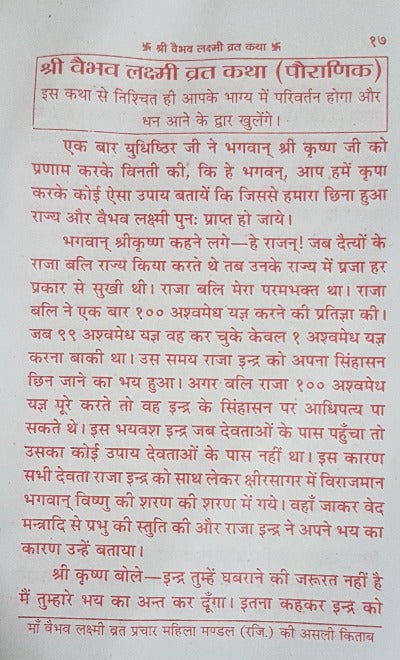 卐 श्री वैभव लक्ष्मी व्रत कथा 卐 १७
श्री वैभव लक्ष्मी व्रत कथा (पौराणिक)
इस कथा से निश्चित ही आपके भाग्य में परिवर्तन होगा और
धन आने के द्वार खुलेंगे।
एक बार युधिष्ठिर जी ने भगवान् श्री कृष्ण जी को
प्रणाम करके विनती की, कि हे भगवन्, आप हमें कृपा
करके कोई ऐसा उपाय बतायें कि जिससे हमारा छिना हुआ
राज्य और वैभव लक्ष्मी पुनः प्राप्त हो जाये।
भगवान् श्रीकृष्ण कहने लगे—हे राजन्! जब दैत्यों के
राजा बलि राज्य किया करते थे तब उनके राज्य में प्रजा हर
प्रकार से सुखी थी। राजा बलि मेरा परमभक्त था। राजा
बलि ने एक बार १०० अश्वमेध यज्ञ करने की प्रतिज्ञा की।
जब ९९ अश्वमेध यज्ञ वह कर चुके केवल १ अश्वमेध यज्ञ
करना बाकी था। उस समय राजा इन्द्र को अपना सिंहासन
छिन जाने का भय हुआ। अगर बलि राजा १०० अश्वमेध
यज्ञ पूरे करते तो वह इन्द्र के सिंहासन पर आधिपत्य पा
सकते थे। इस भयवश इन्द्र जब देवताओं के पास पहुँचा तो
उसका कोई उपाय देवताओं के पास नहीं था। इस कारण
सभी देवता राजा इन्द्र को साथ लेकर क्षीरसागर में विराजमान
भगवान् विष्णु की शरण की शरण में गये। वहाँ जाकर वेद
मन्त्रादि से प्रभु की स्तुति की और राजा इन्द्र ने अपने भय का
कारण उन्हें बताया।
श्री कृष्ण बोले—इन्द्र तुम्हें घबराने की जरूरत नहीं है
मैं तुम्हारे भय का अन्त कर दूँगा। इतना कहकर इन्द्र को
माँ वैभव लक्ष्मी व्रत प्रचार महिला मण्डल (रजि.) की असली किताब